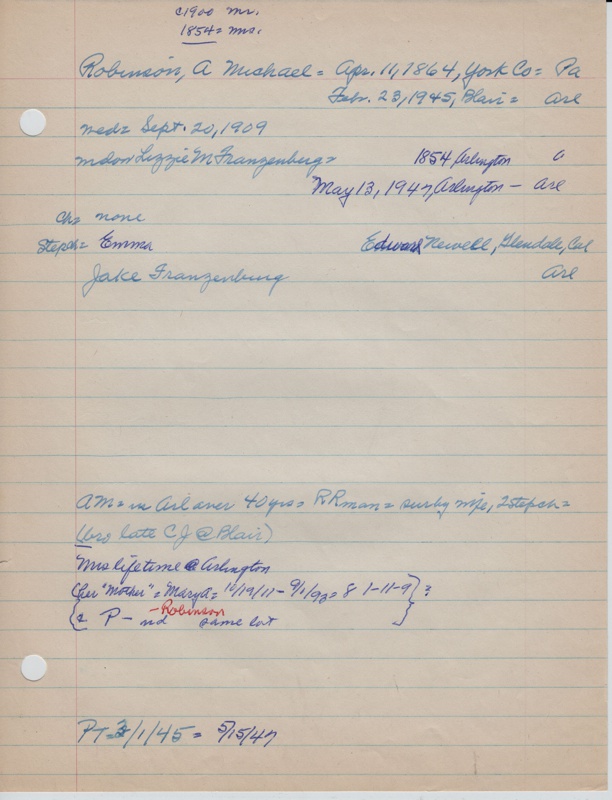 c1900 Mr.
1854 = Mrs.
Robinson, A Michael = Apr. 11, 1864, York Co = Pa
Feb. 23, 1945, Blair = Arl
med = Sept. 20, 1909
mdon Lizzie M Franzenburg = 1854, Arlington
May 13, 1947, Arlington - Arl
Ch = none
Stepch = Emma Edward Newell, Glendale, Cal
Jake Franzenburg Arl
AM = in Arl over 40 yrs = RRman = sur by wife, 2 stepch =
(bro late CJ @ Blair)
Mrs lifetime @ Arlington
{her "Mother" = Mary A = 10/19/11 - 9/1/93 = 81-11-9} ?
{& P - nd - Robinson same lot}
PT = 3/1/45 = 5/15/47